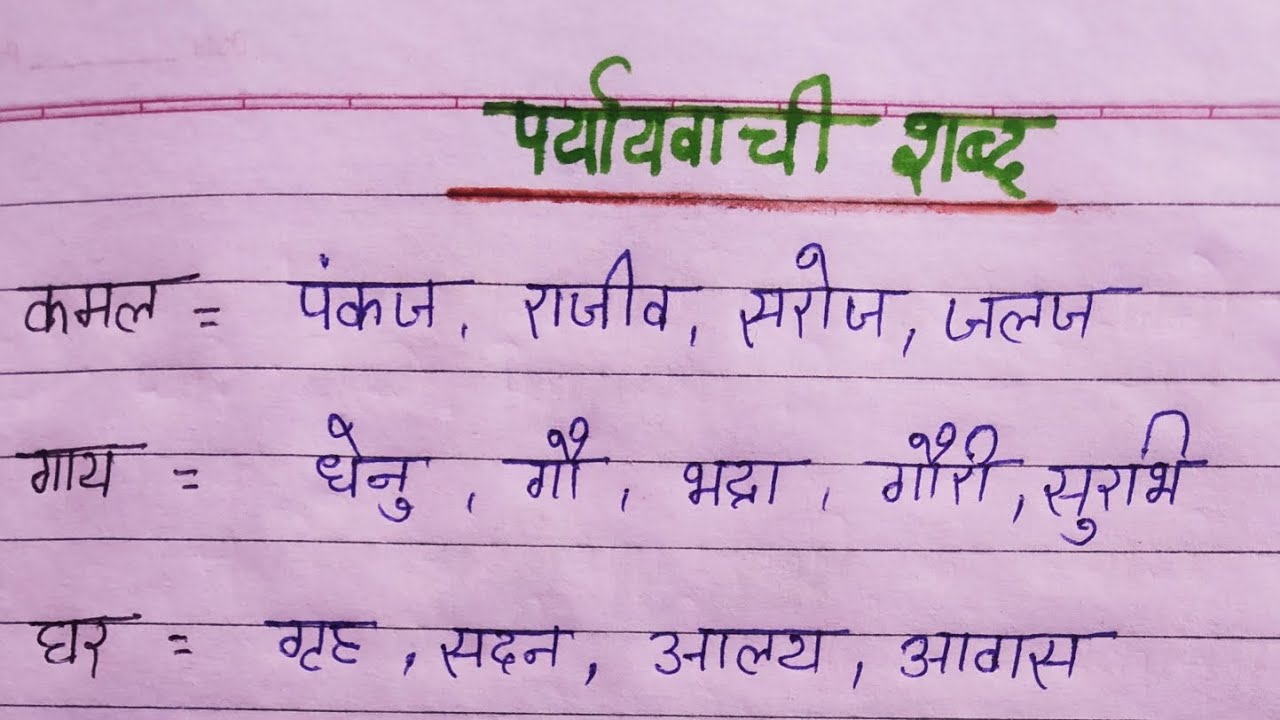 पर्यायवाची शब्द
कमल = पंकज, राजीव, सरोज, जलज
गाय = धेनु, गौ, भद्रा, गौरी, सुरभि
घर = गृह, सदन, आलय, आवास